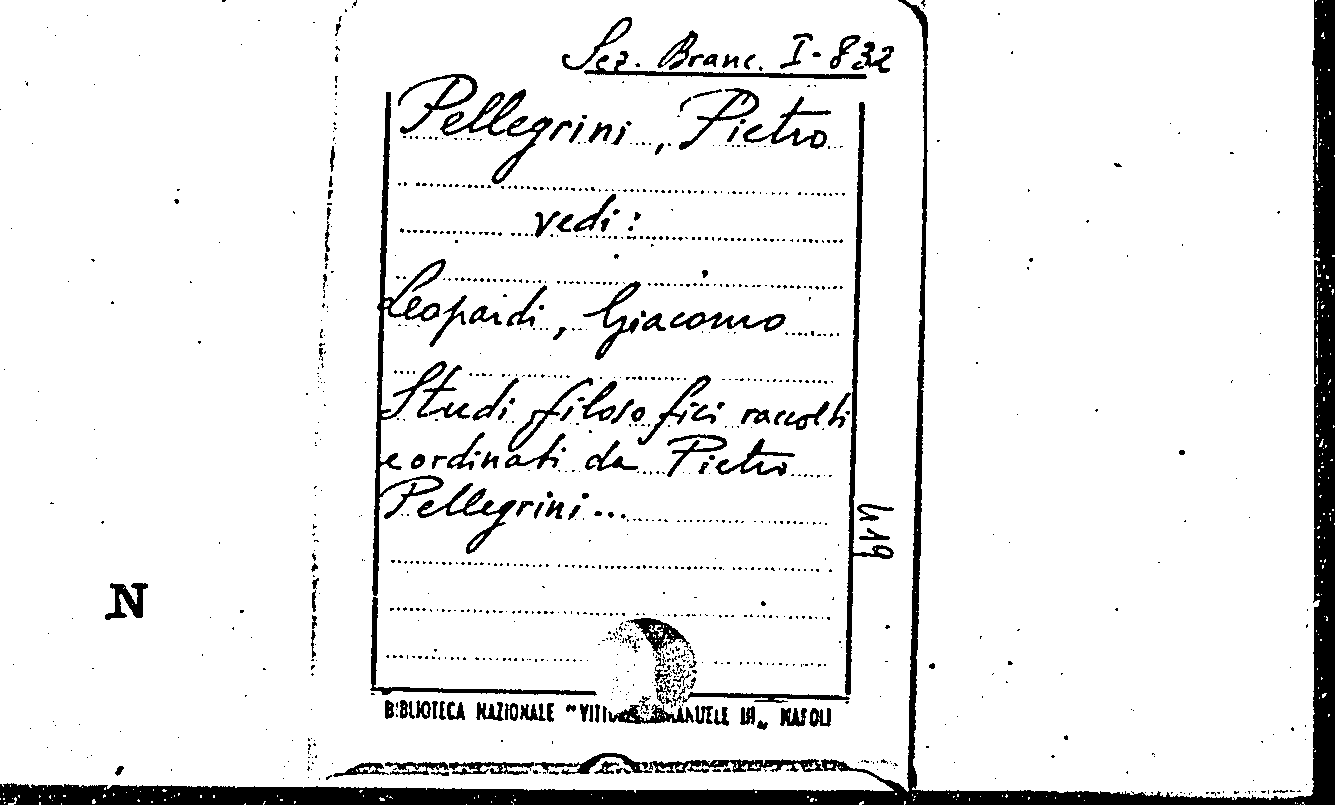 Sez. Branc. I-832
Pellegrini, Pietro
vedi:
Leopardi, Giacomo
Studi filosofici raccolti
e ordinati da Pietro
Pellegrini...
419
N
BIBLIOTECA NAZIONALE "VITTORIO EMANUELE III„ NAPOLI